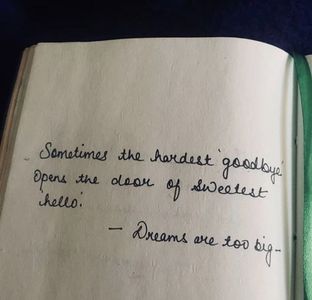 Sometimes the hardest 'goodbye'
Opens the door of sweetest
'hello'.
— Dreams are too big —